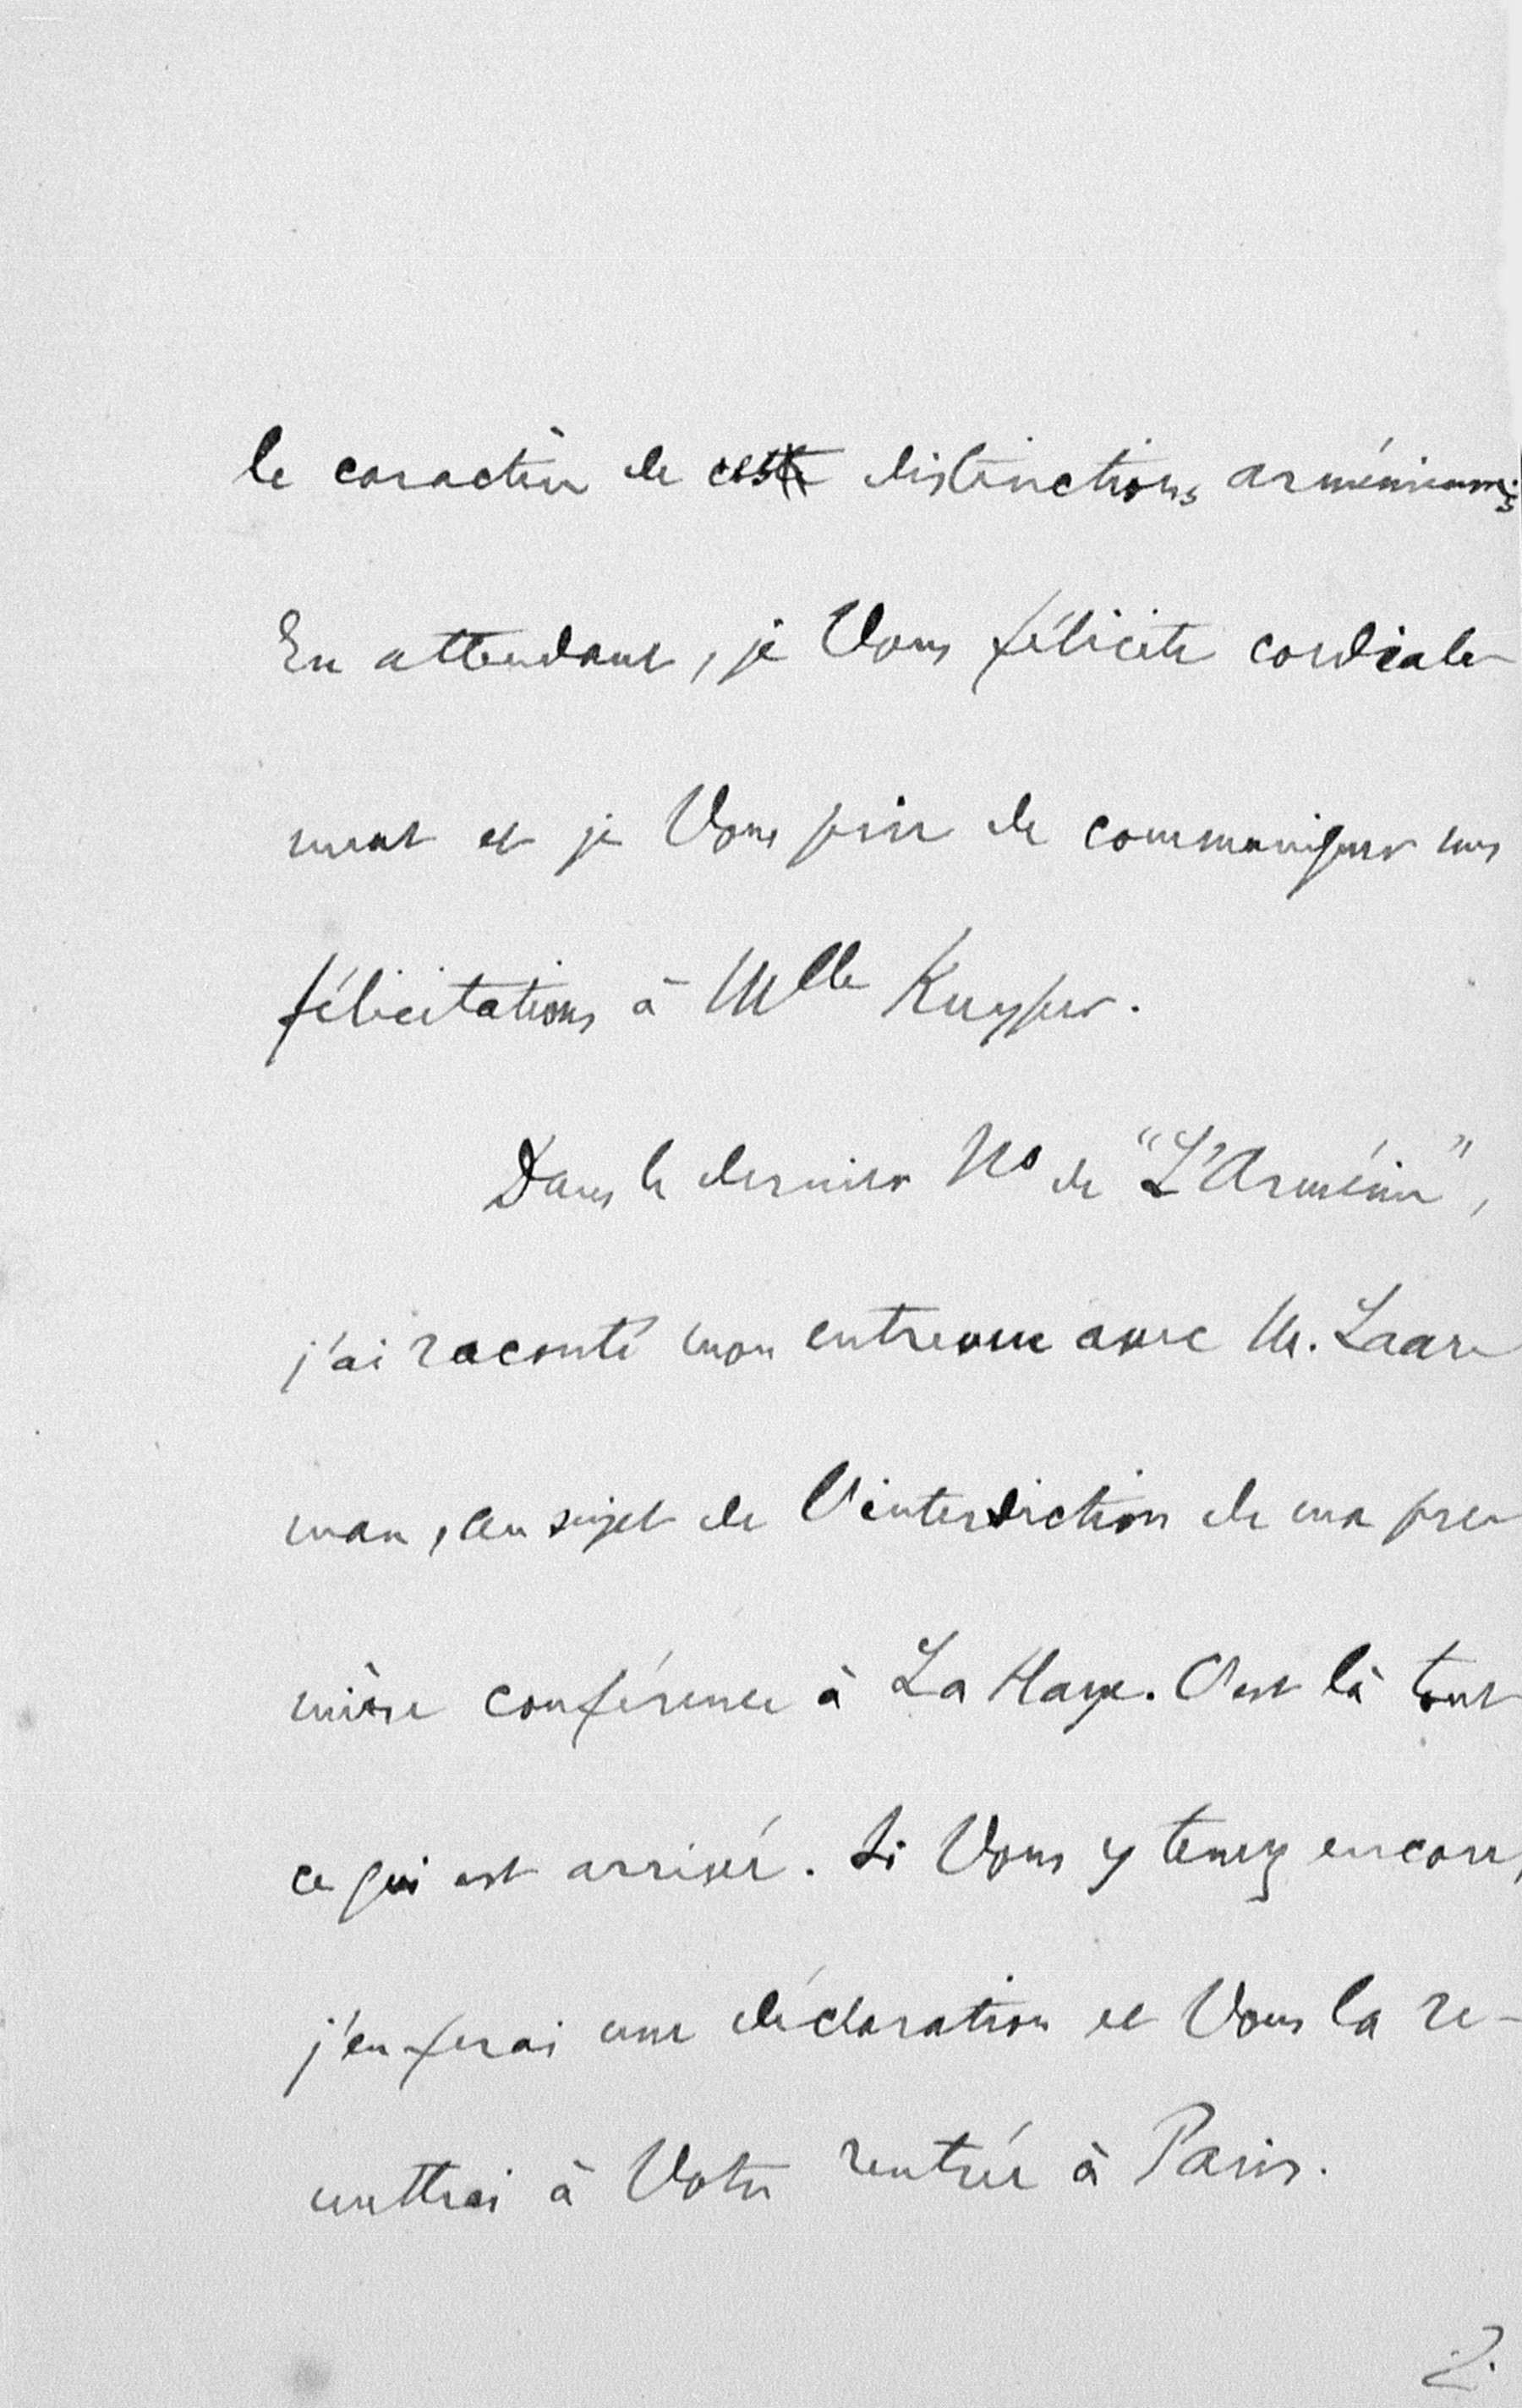 le caractère de ces distinctions arméniennes
En attendant, je Vous félicite cordiale-
ment et je Vous prie de communiquer mes
félicitations à Mlle Kuyper.
Dans le dernier No de "L'Arménie",
j'ai raconté mon entrevue avec M. Laar-
man, au sujet de l'interdiction de ma pre-
mière conférence à La Haye. C'est là tout
ce qui est arrivé. Si Vous y tenez encore,
j'en ferai une déclaration et Vous la re-
mettrai à Votre rentrée à Paris.
2.